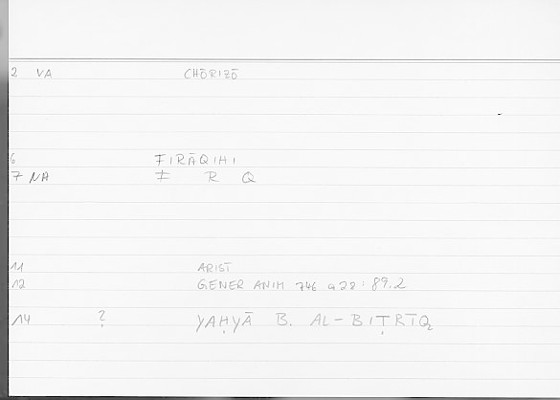 2 VA CHŌRIZŌ
6 FIRĀQIHI
7 NA F R Q
11 ARIST
12 GENER ANIM 746 a 28 : 89.2
14 ? YAḤYĀ B. AL-BIṬRĪQ